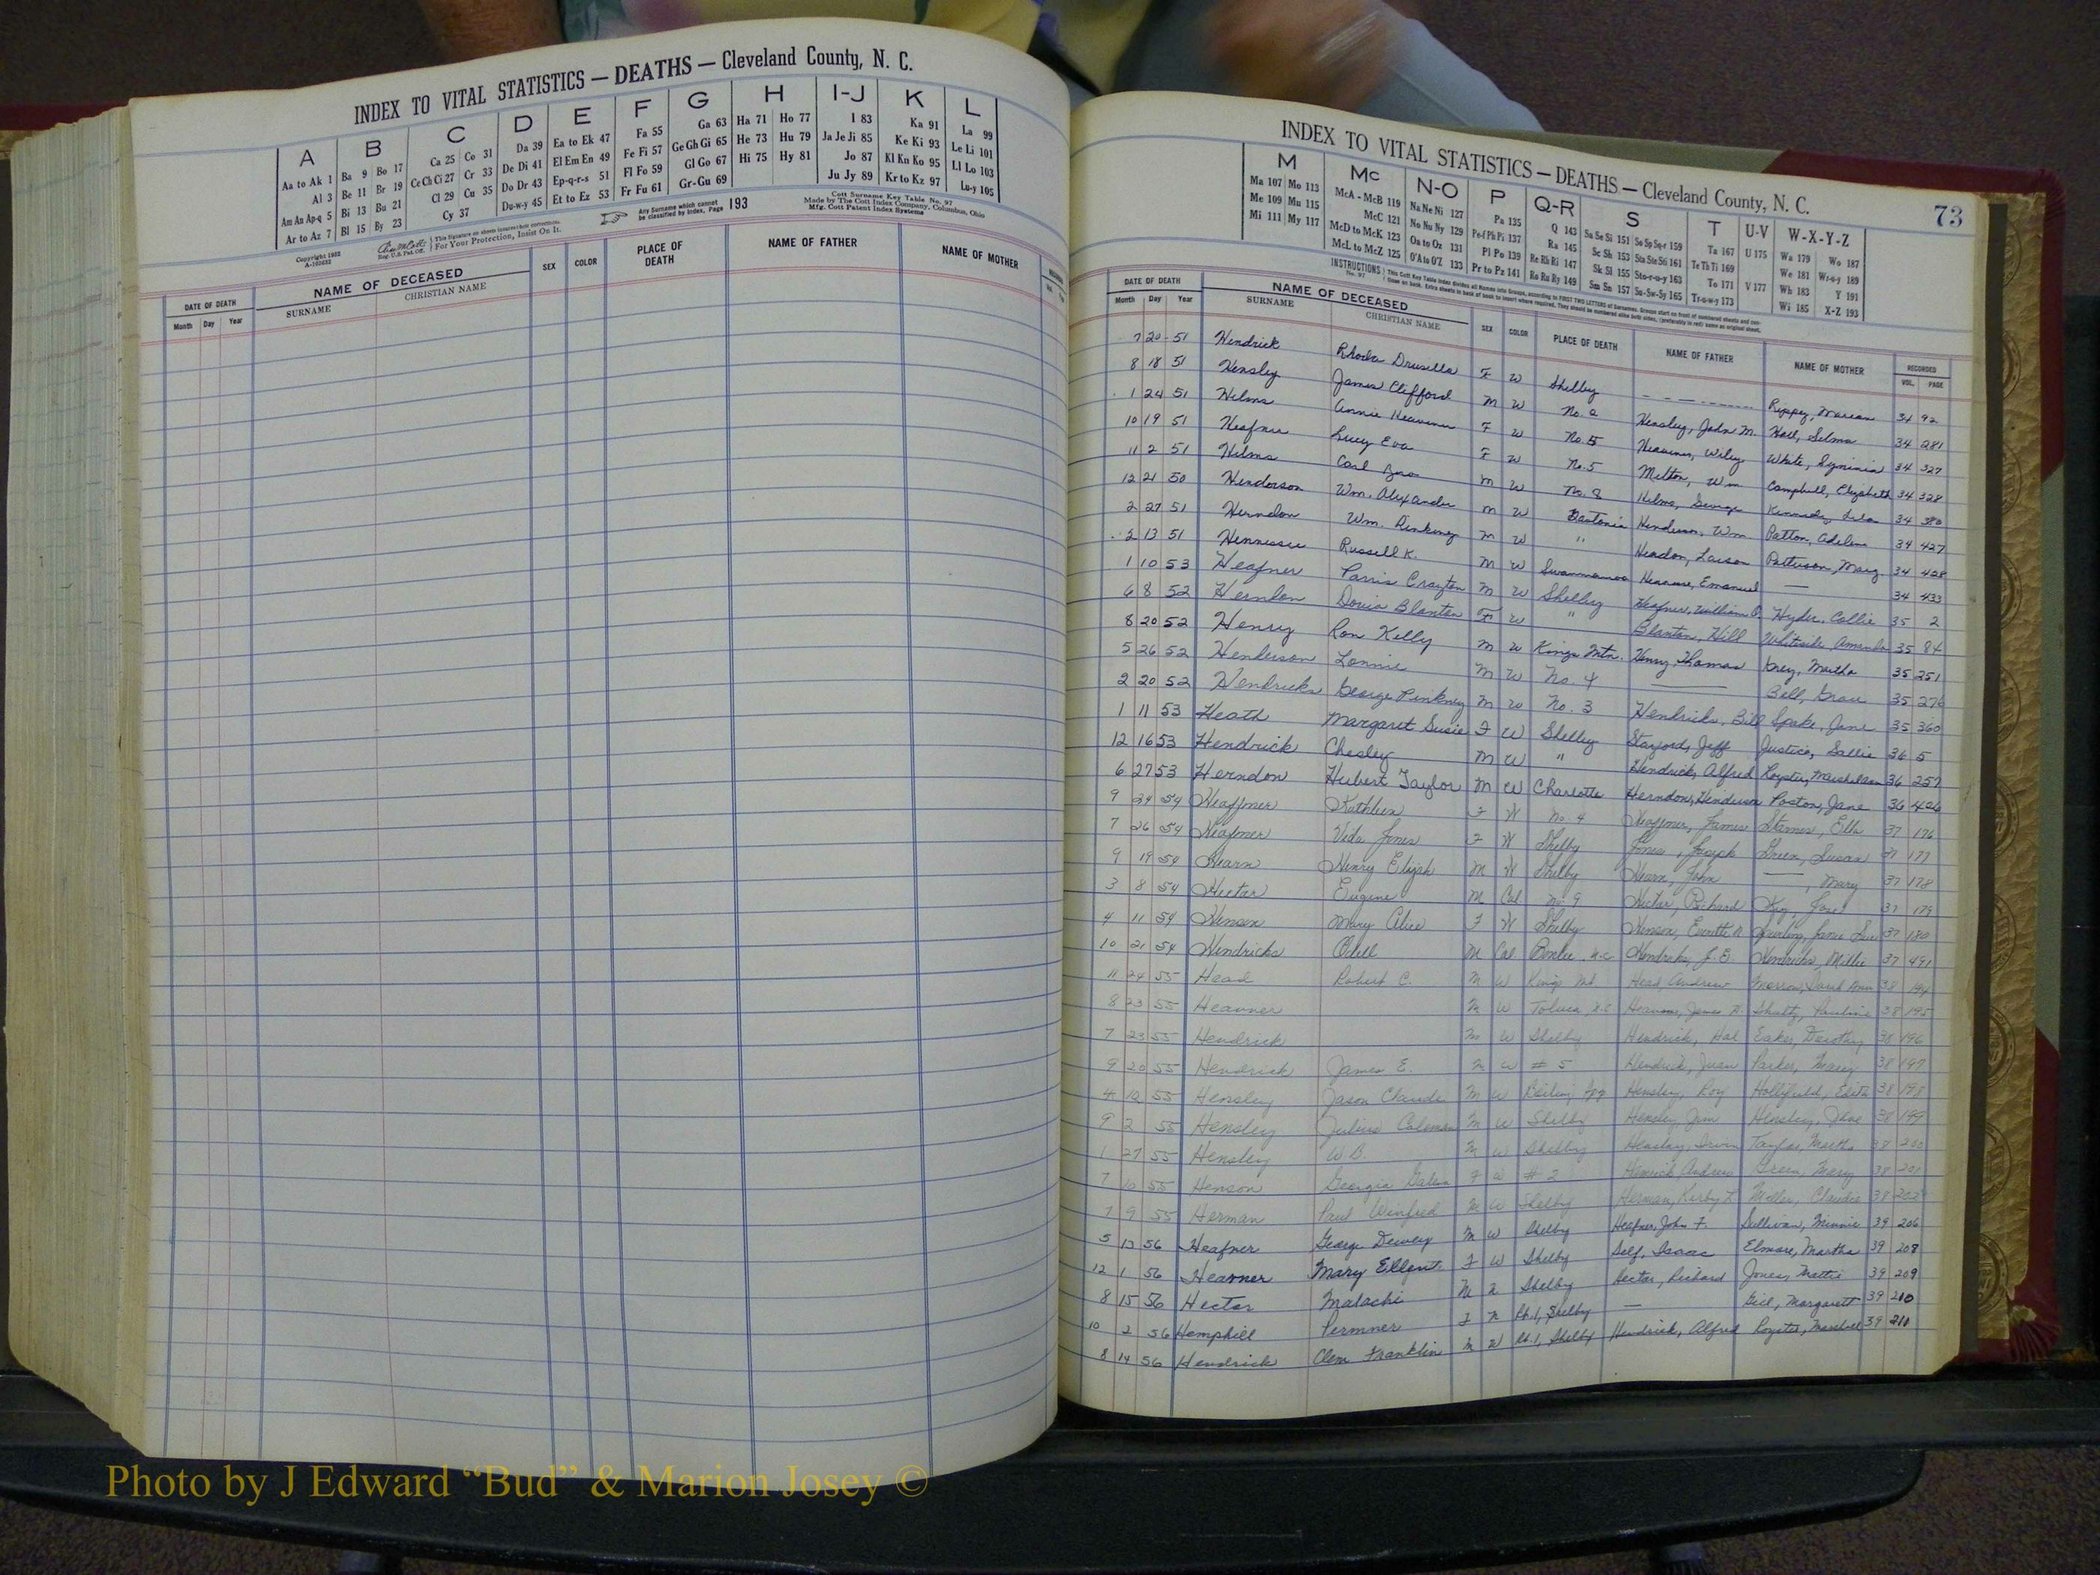 INDEX TO VITAL STATISTICS — DEATHS — Cleveland County, N. C.
A B C D E F G H I-J K L
Aa to Ak 1 Ba 9 Bo 17 Ca 25 Co 31 Da 39 Ea to Ek 47 Fa 55 Ga 63 Ha 71 Ho 77 I 83 Ka 91 La 99
Al 3 Be 11 Br 19 Ce Ch Ci 27 Cr 33 De Di 41 El Em En 49 Fe Fi 57 Ge Gh Gi 65 He 73 Hu 79 Ja Je Ji 85 Ke Ki 93 Le Li 101
Am An Ap-q 5 Bi 13 Bu 21 Cl 29 Cu 35 Do Dr 43 Ep-q-r-s 51 Fl Fo 59 Gl Go 67 Hi 75 Hy 81 Jo 87 Kl Kn Ko 95 Ll Lo 103
Ar to Az 7 Bl 15 By 23 Cy 37 Du-w-y 45 Et to Ez 53 Fr Fu 61 Gr-Gu 69 Ju Jy 89 Kr to Kz 97 Lu-y 105
Copyright 1932
For Your Protection, Insist On It.
Any Surname which cannot be classified by Index, Page 193
Cott Surname Key Table No. 97
Made by The Cott Index Company, Columbus, Ohio
Mfg. Cott Patent Index Systems
DATE OF DEATH NAME OF DECEASED SEX COLOR PLACE OF DEATH NAME OF FATHER NAME OF MOTHER
Month Day Year SURNAME CHRISTIAN NAME
INDEX TO VITAL STATISTICS — DEATHS — Cleveland County, N. C.
73
M Mc N-O P Q-R S T U-V W-X-Y-Z
Ma 107 Mo 113 McA - McB 119 Na Ne Ni 127 Pa 135 Q 143 Sa Se Si 151 So Sp Sq-r 159 Ta 167 U 175 Wa 179 Wo 187
Me 109 Mu 115 McC 121 No Nu Ny 129 Pe-f Ph Pi 137 Ra 145 Sc Sh 153 Sta Ste Sti 161 Te Th Ti 169 We 181 Wr-u-y 189
Mi 111 My 117 McD to McK 123 Oa to Oz 131 Pl Po 139 Re Rh Ri 147 Sk Sl 155 Sto-r-u-y 163 To 171 V 177 Wh 183 Y 191
McL to McZ 125 O'A to O'Z 133 Pr to Pz 141 Ro Ru Ry 149 Sm Sn 157 Su-Sw-Sy 165 Tr-u-w-y 173 Wi 185 X-Z 193
INSTRUCTIONS
DATE OF DEATH NAME OF DECEASED SEX COLOR PLACE OF DEATH NAME OF FATHER NAME OF MOTHER RECORDED
Month Day Year SURNAME CHRISTIAN NAME VOL. PAGE
7 20 51 Hendrick Rhoda Drusella F W Shelby Rippey, Marian 34 92
8 18 51 Hensley James Clifford M W No. 2 Hensley, John M. Hall, Selma 34 281
1 24 51 Helms Annie Heavner F W No. 5 Heavner, Wiley White, 34 327
10 19 51 Heafner Lucy Eva F W No. 5 Melton, Wm Campbell, Elizabeth 34 328
11 2 51 Helms Carl M W No. 8 Helms, George Kennedy, 34 380
12 21 50 Henderson Wm. Alexander M W Gastonia Henderson, Wm Patton, Adeline 34 427
2 27 51 Herndon Wm. Pinkney M W " Herndon, Patterson, Mary 34 428
2 13 51 Hennessee Russell K. M W Swannanoa Hennessee, Emanuel — 34 433
1 10 53 Heafner Parris Crayton M W Shelby Heafner, William Hyder, Callie 35 2
6 8 52 Herndon Dovie Blanton F W " Blanton, Hill Whiteside, Amanda 35 84
8 20 52 Henry Ron Kelly M W Kings Mtn. Henry, Thomas Martha 35 251
5 26 52 Henderson Lonnie M W No. 4 — Bell, Grace 35 276
2 20 52 Hendricks George Pinkney M W No. 3 Hendricks, Bill Spake, Jane 35 360
1 11 53 Heath Margaret Susie F W Shelby Jeff Justice, Sallie 36 5
12 16 53 Hendrick Chesley M W " Hendrick, Alfred Royster, 36 257
6 27 53 Herndon Hubert Taylor M W Charlotte Herndon, Henderson Poston, Jane 36 426
9 24 54 Heaffner Kathleen F W No. 4 Heaffner, James Starnes, Ella 37 176
7 26 54 Heafner Veda Jones F W Shelby Jones, Joseph Green, Susan 37 177
9 19 54 Hearn Henry Elijah M W Shelby Hearn, John —, Mary 37 178
3 8 54 Hector Eugene M Col No. 9 Hector, Richard 37 179
4 11 54 Henson Mary Alice F W Shelby Henson, Everette 37 180
10 21 54 Hendricks Odell M Col N.C. Hendricks, J. E. Hendricks, Millie 37 491
11 24 55 Head Robert C. M W Kings Mt. Head, Andrew Morrow, Sarah Ann 38 194
8 23 55 Heavner M W Toluca, N.C. Heavner, James Shultz, Pauline 38 195
7 23 55 Hendrick M W Shelby Hendrick, Hal Eaker, Dorothy 38 196
9 20 55 Hendrick James E. M W # 5 Hendrick, Juan Parker, Mary 38 197
4 12 55 Hensley Jason Claude M W Boiling Spg Hensley, Roy Hollifield, 38 198
9 2 55 Hensley Julius Coleman M W Shelby Hensley, Jim Hensley, 38 199
1 27 55 Hensley W B. M W Shelby Hensley, Taylor, Martha 38 200
7 10 55 Henson Georgia F W # 2 Hamrick, Andrew Green, Mary 38 201
7 9 55 Herman Paul Winfred M W Shelby Herman, Kirby L Miller, Claudia 38 202
5 13 56 Heafner George Dewey M W Shelby Heafner, John F. Sullivan, Minnie 39 206
12 1 56 Heavner Mary Ellen F W Shelby Self, Isaac Elmore, Martha 39 208
8 15 56 Hector Malachi M N Shelby Hector, Richard Jones, Mattie 39 209
10 2 56 Hemphill Permner F N Rt. 1, Shelby — Margarett 39 210
8 14 56 Hendrick Clem Franklin M W Rt. 1, Shelby Hendrick, Alfred Royster, 39 211
Photo by J Edward "Bud" & Marion Josey ©